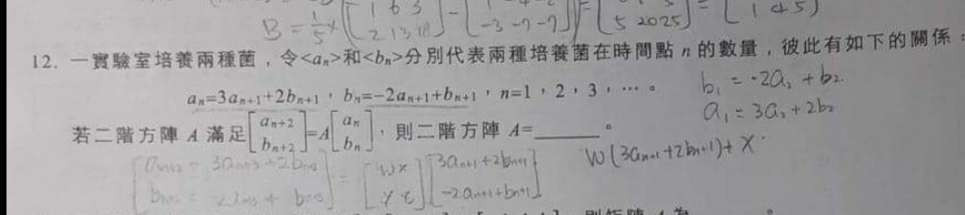 B = 1/5 × ([1 6 3
2 13 18] - [
-3 -7 -7]) = [
5 20 25] = [1 4 5)
12. 一實驗室培養兩種菌，令<aₙ>和<bₙ>分別代表兩種培養菌在時間點 n 的數量，彼此有如下的關係：
aₙ=3aₙ₊₁+2bₙ₊₁，bₙ=−2aₙ₊₁+bₙ₊₁，n=1，2，3，…。
b₁ = -2a₂ + b₂.
a₁ = 3a₂ + 2b₂
若二階方陣 A 滿足[aₙ₊₂ bₙ₊₂]=A[aₙ bₙ]，則二階方陣 A=______。
[aₙ₊₂ = 3aₙ₊₃ + 2bₙ₊₃ = [w x [3aₙ₊₁+2bₙ₊₁
bₙ₊₂ = -2aₙ₊₃ + bₙ₊₃] y z] -2aₙ₊₁+bₙ₊₁]
W(3aₙ₊₁+2bₙ₊₁)+ X